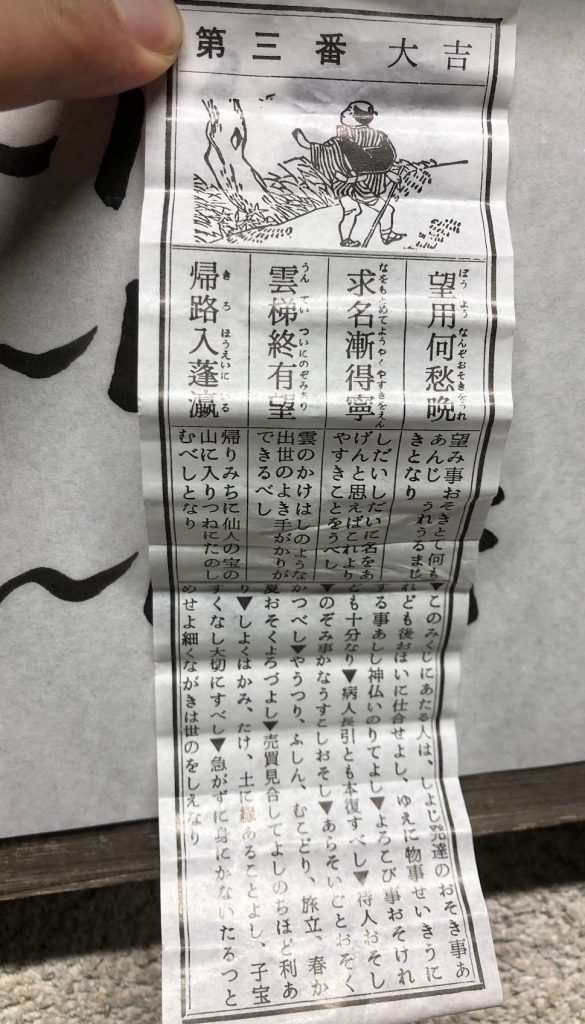 第三番 大吉
ぼうよう なんぞおそきをうれ
望用何愁晩
なをもとめてようやくやすきをえん
求名漸得寧
うんてい ついにのぞみあり
雲梯終有望
きろ ほうえいにいる
帰路入蓬瀛
望み事おそきとて何も
あんじうれうるまじ
きとなり
しだいしだいに名をあ
げんと思えばこれより
やすきことをうべし
雲のかけはしのような
出世のよき手がかりが
できるべし
帰りみちに仙人の宝の
山に入りつねにたのし
むべしとなり
▼このみくじにあたる人は、しよじ発達のおそき事あ
れども後おほいに仕合せよし、ゆえに物事せいきうに
する事あしし神仏いのりてよし▼よろこび事おそけれ
ども十分なり▼病人長引とも本復すべし▼待人おそし
▼のぞみ事かなうすこしおそし▼あらそいごとおそく
かつべし▼やうつり、ふしん、むこどり、旅立、春か
夏おそくよろづよし▼売買見合してよしのちほど利あ
り▼しよくはかみ、たけ、土に縁あることよし、子宝
すくなし大切にすべし▼急がずに身にかないたるつと
めせよ細くながきは世のをしえなり